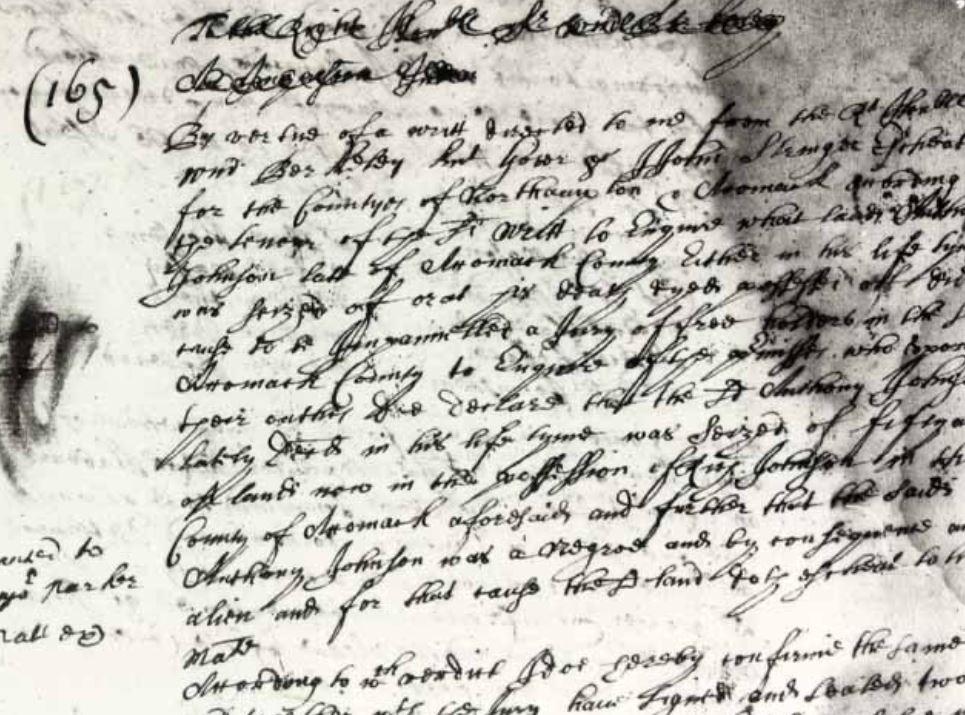 To the Right Honble Sr
(165)
By vertue of a writt directed to me from the Rt Honble
Wm Berkeley knt Gover &c I John Stringer Escheat
for the Countyes of Northampton & Accomack according
the tenour of the sd writt to Enquire what lands Anthony
Johnson late of Accomack County Either in his life tyme
was seized of or at his death dyed possessed off did
cause to be Impannelled a Jury of free holders in the sd
Accomack County to Enquire of the premisses who upon
their oathes did declare that the sd Anthony Johnson
lately Decd in his life tyme was seized of fifty a
off land now in the possession of Johnson in the
County of Accomack aforesaid and further that the said
Anthony Johnson was a negroe and by consequence an
alien and for that cause the sd land doth escheat to
Matie
According to wch verdict I doe hereby confirme the same
the Jury have signed and sealed two
to
Parker